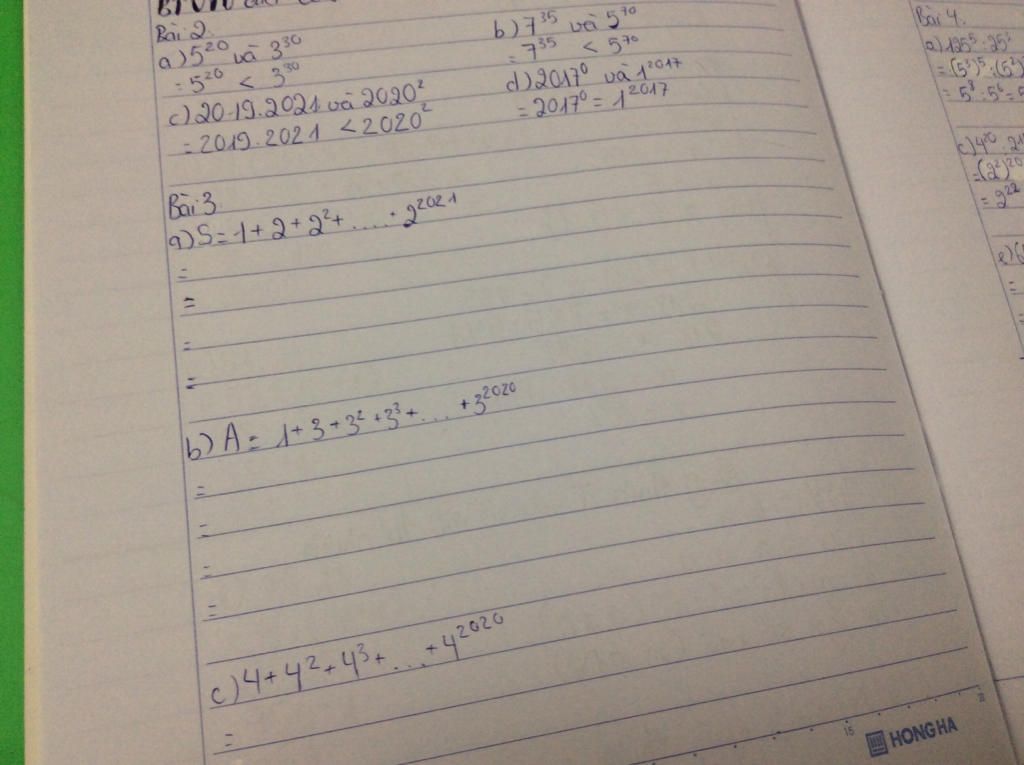 BTVN
Bài 2.
a) 5²⁰ và 3³⁰
= 5²⁰ < 3³⁰
b) 7³⁵ và 5⁷⁰
= 7³⁵ < 5⁷⁰
c) 20.19.2021 và 2020²
= 2019.2021 < 2020²
d) 2017⁰ và 1²⁰¹⁷
= 2017⁰ = 1²⁰¹⁷
Bài 3
a) S = 1 + 2 + 2² + ..... . 2²⁰²¹
=
=
=
=
b) A = 1 + 3 + 3² + 3³ + .... + 3²⁰²⁰
=
=
=
=
c) 4 + 4² + 4³ + ... + 4²⁰²⁰
=
15
HONG HA
Bài 4.
a) 125⁵ : 25³
= (5³)⁵ : (5²)
= 5⁸ : 5⁶ = 5
c) 4²⁰ . 2
= (2²)²⁰
= 2²²
e) (
=